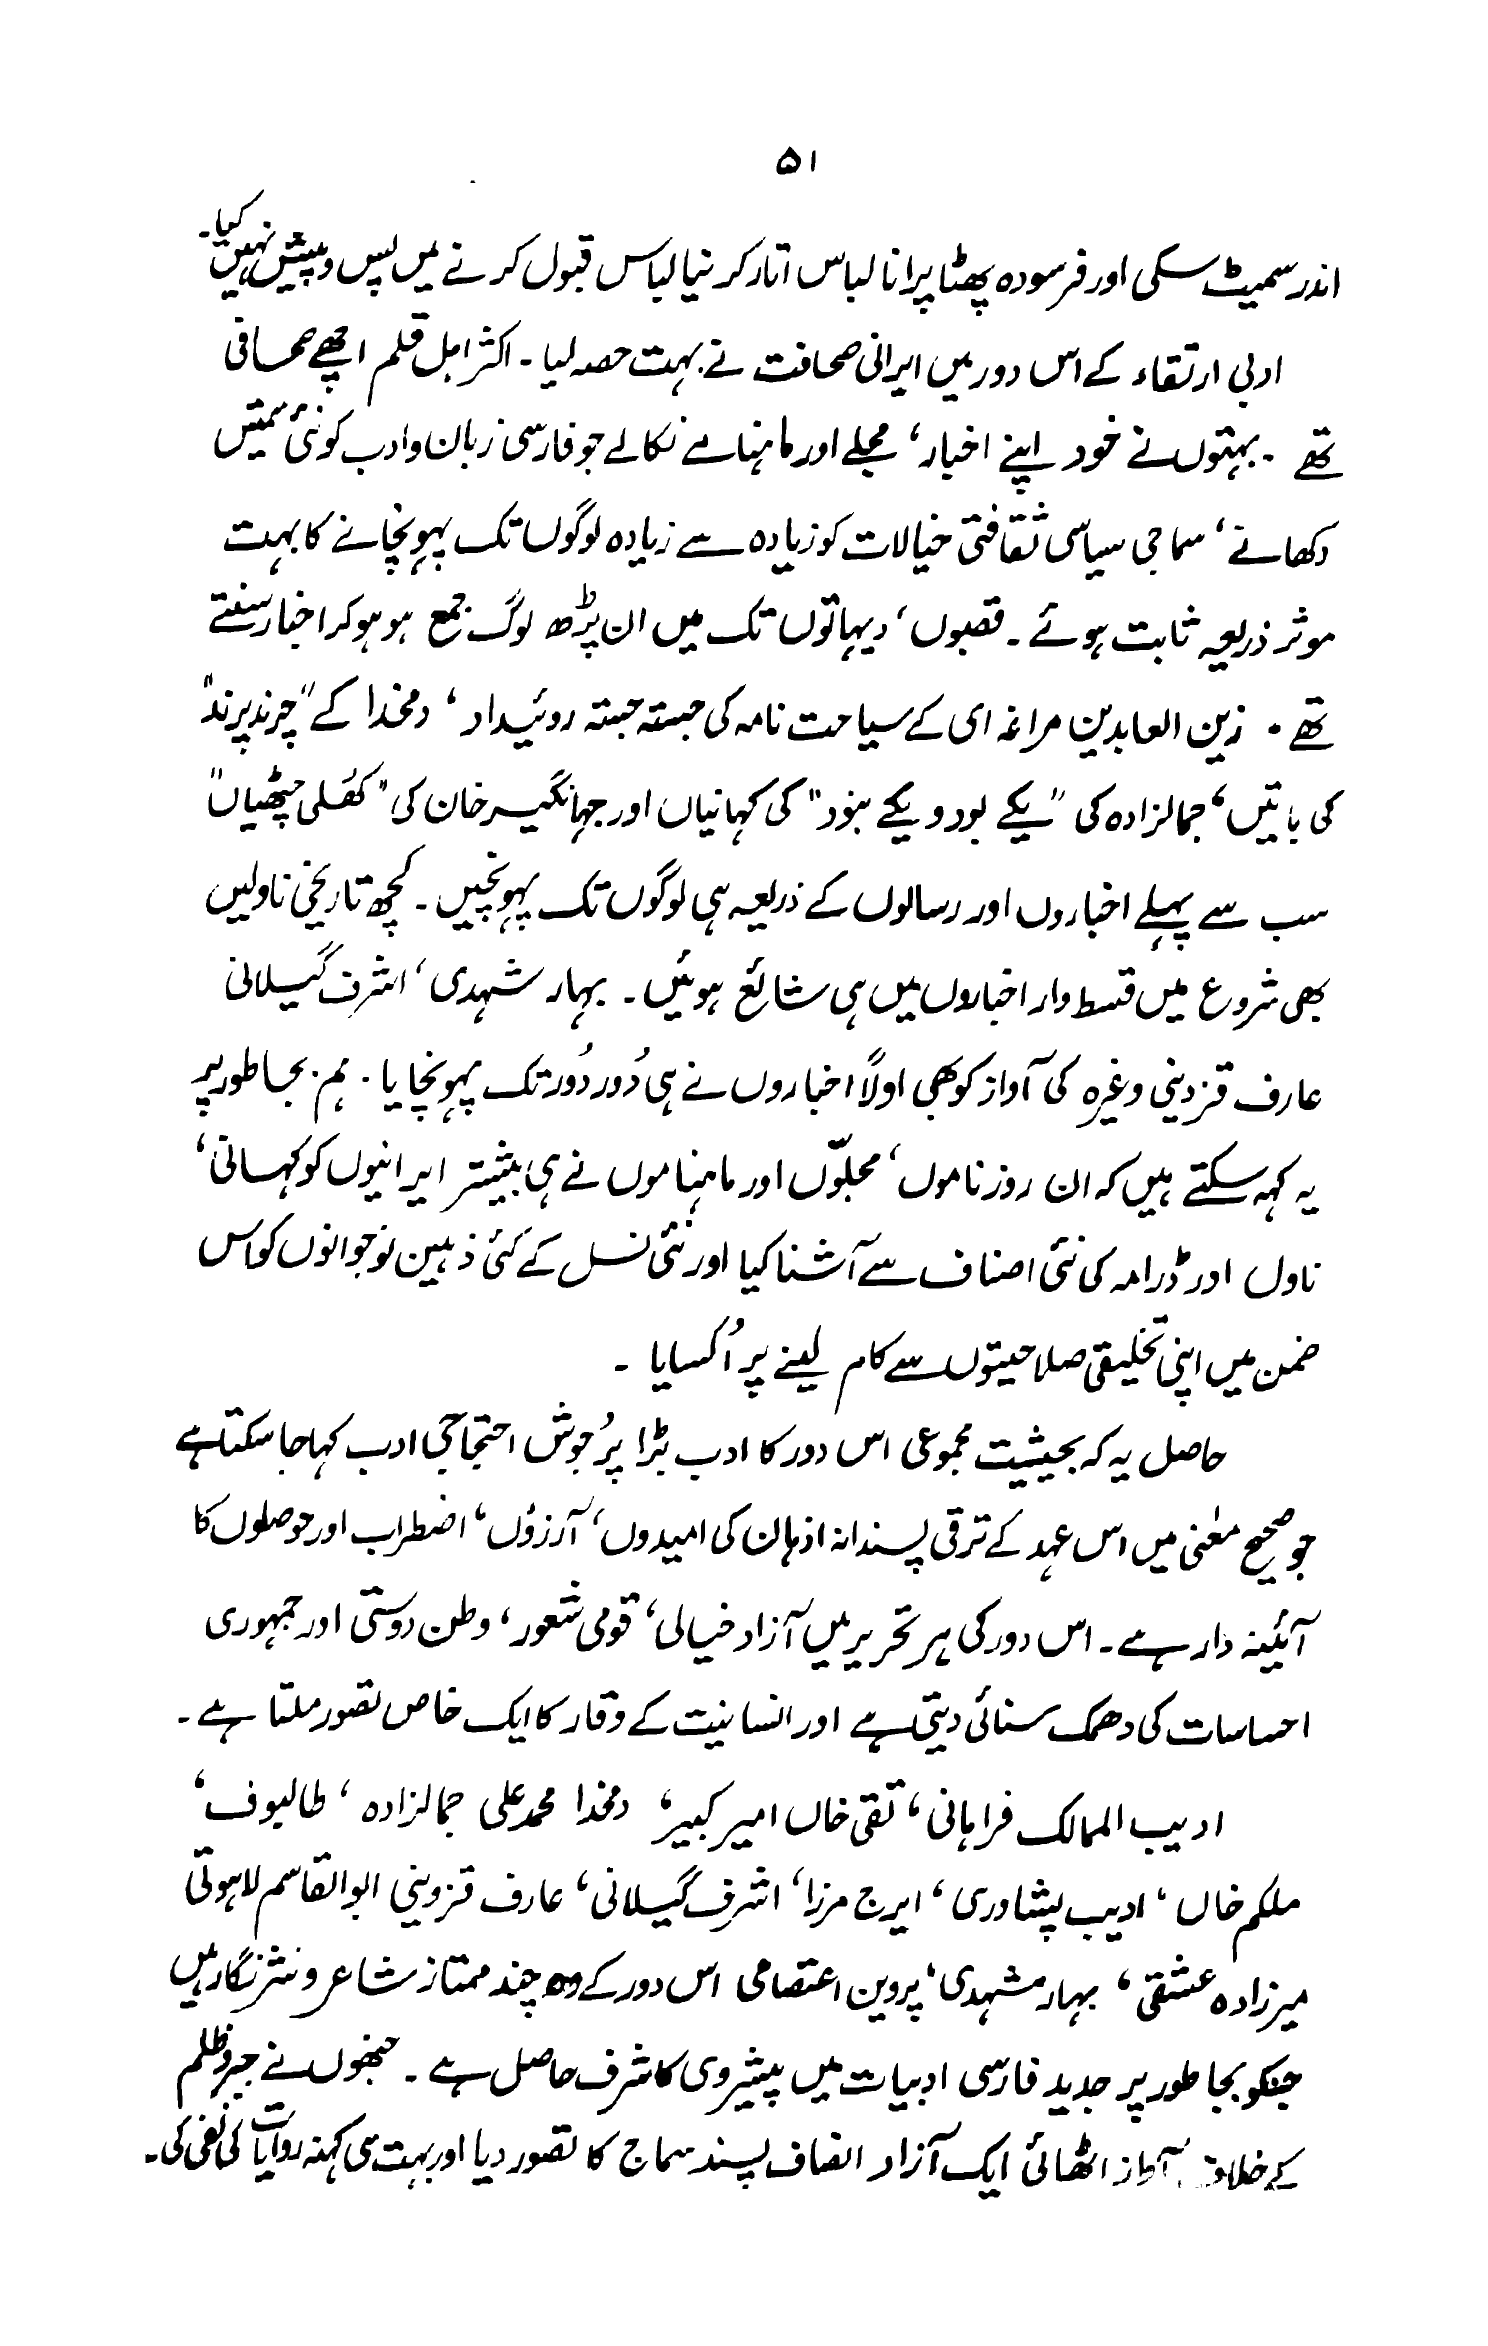 ۵۱
اندر سمیٹ سکی اور فرسودہ پھٹا پرانا لباس اتار کر نیا لباس قبول کرنے میں پس و پیش نہیں کیا۔
ادبی ارتقاء کے اس دور میں ایرانی صحافت نے بہت حصہ لیا۔ اکثر اہل قلم اچھے صحافی
تھے۔ بہتوں نے خود اپنے اخبار، مجلے اور ماہنامے نکالے جو فارسی زبان و ادب کو نئی سمتیں
دکھانے، سماجی سیاسی ثقافتی خیالات کو زیادہ سے زیادہ لوگوں تک پہونچانے کا بہت
موثر ذریعہ ثابت ہوئے۔ قصبوں، دیہاتوں تک میں ان پڑھ لوگ جمع ہو ہو کر اخبار سنتے
تھے۔ زین العابدین مراغہ ای کے سیاحت نامہ کی جستہ جستہ روئیداد، دہخدا کے "چرند پرند"
کی باتیں، جمالزادہ کی "یکے بود و یکے نبود" کی کہانیاں اور جہانگیر خان کی "کھلی چٹھیاں"
سب سے پہلے اخباروں اور رسالوں کے ذریعہ ہی لوگوں تک پہونچیں۔ کچھ تاریخی ناولیں
بھی شروع میں قسط وار اخباروں میں ہی شائع ہوئیں۔ بہار شہدی، اشرف گیلانی
عارف قزدینی وغیرہ کی آواز کو بھی اولاً اخباروں نے ہی دُور دُور تک پہونچایا۔ ہم بجا طور پر
یہ کہہ سکتے ہیں کہ ان روزناموں، مجلّوں اور ماہناموں نے ہی بیشتر ایرانیوں کو کہانی،
ناول اور ڈرامہ کی نئی اصناف سے آشنا کیا اور نئی نسل کے کئی ذہین نوجوانوں کو اس
ضمن میں اپنی تخلیقی صلاحیتوں سے کام لینے پر اُکسایا۔
حاصل یہ کہ بحیثیت مجموعی اس دور کا ادب بڑا پُرجوش احتجاجی ادب کہا جا سکتا ہے
جو صحیح معنٰی میں اس عہد کے ترقی پسندانہ اذہان کی امیدوں، آرزؤں، اضطراب اور حوصلوں کا
آئینہ دار ہے۔ اس دور کی ہر تحریر میں آزاد خیالی، قومی شعور، وطن دوستی اور جمہوری
احساسات کی دھمک سنائی دیتی ہے اور انسانیت کے وقار کا ایک خاص تصور ملتا ہے۔
ادیب الممالک فراہانی، تقی خاں امیر کبیر، دہخدا محمد علی جمالزادہ، طالبوف،
ملکم خاں، ادیب پشاوری، ایرج مرزا، اشرف گیلانی، عارف قزوینی ابوالقاسم لاہوتی
میرزادہ عشقی، بہار مشہدی، پروین اعتصامی اس دور کے وہ چند ممتاز شاعر و نثر نگار ہیں
جنکو بجا طور پر جدید فارسی ادبیات میں پیشروی کا شرف حاصل ہے۔ جنھوں نے جبر و ظلم
کے خلاف آواز اٹھائی ایک آزاد انصاف پسند سماج کا تصور دیا اور بہت سی کہنہ روایات کی نفی کی۔